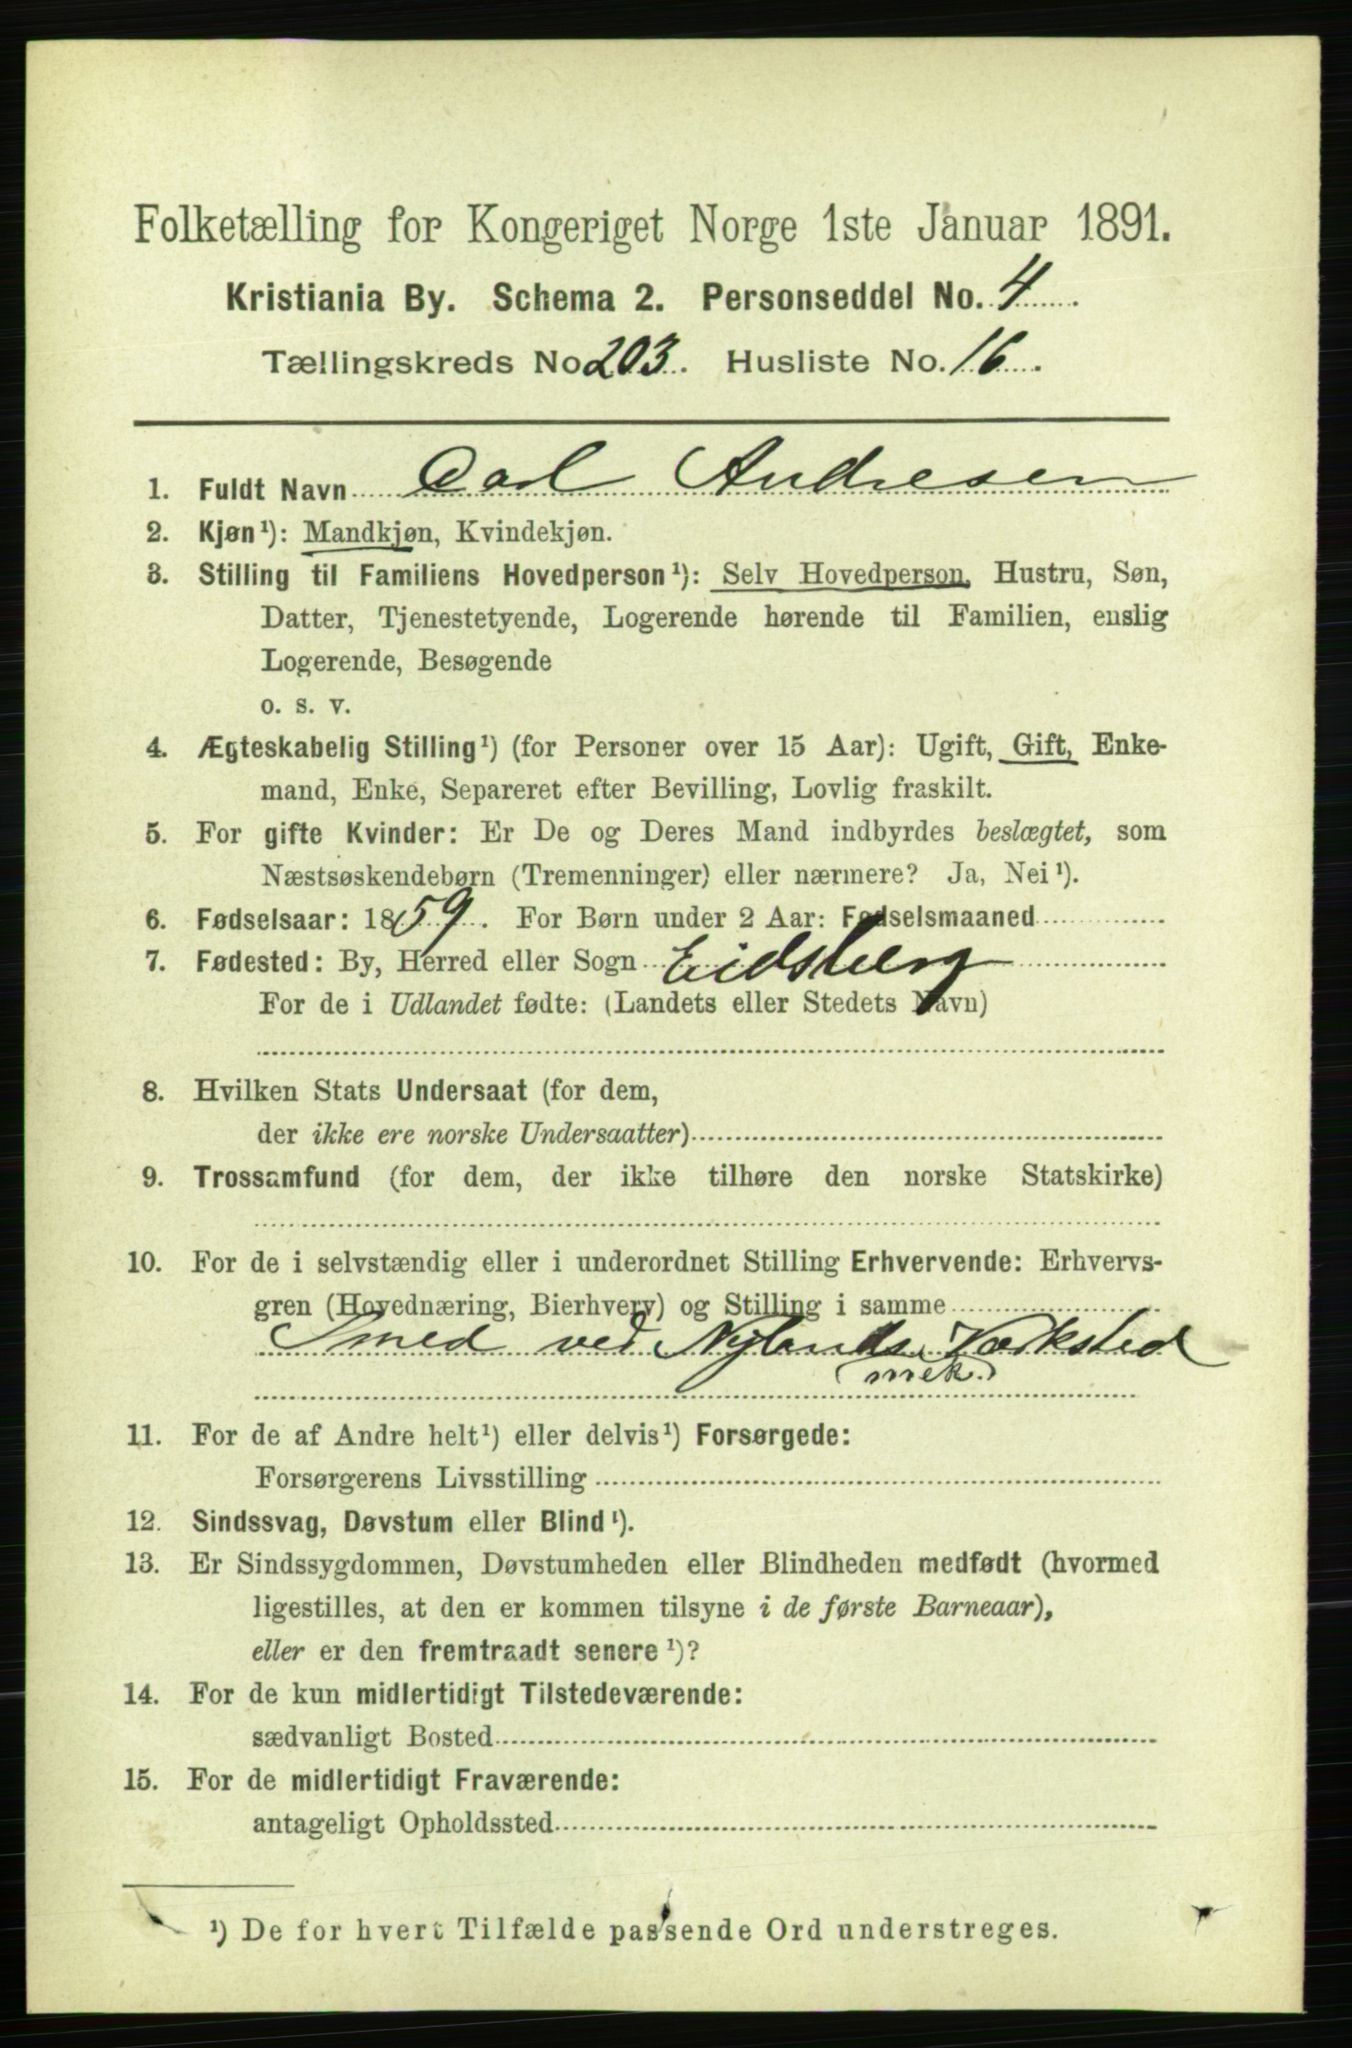 Folketælling for Kongeriget Norge 1ste Januar 1891.
Kristiania By. Schema 2. Personseddel No. 4
Tællingskreds No 203. Husliste No. 16.
1. Fuldt Navn Carl Andresen
2. Kjøn¹): Mandkjøn, Kvindekjøn.
3. Stilling til Familiens Hovedperson¹): Selv Hovedperson, Hustru, Søn,
Datter, Tjenestetyende, Logerende hørende til Familien, enslig
Logerende, Besøgende
o. s. v.
4. Ægteskabelig Stilling¹) (for Personer over 15 Aar): Ugift, Gift, Enke-
mand, Enke, Separeret efter Bevilling, Lovlig fraskilt.
5. For gifte Kvinder: Er De og Deres Mand indbyrdes beslægtet, som
Næstsøskendebørn (Tremenninger) eller nærmere? Ja, Nei¹).
6. Fødselsaar: 1859. For Børn under 2 Aar: Fødselsmaaned
7. Fødested: By, Herred eller Sogn Eidsberg
For de i Udlandet fødte: (Landets eller Stedets Navn)
8. Hvilken Stats Undersaat (for dem,
der ikke ere norske Undersaatter)
9. Trossamfund (for dem, der ikke tilhøre den norske Statskirke)
10. For de i selvstændig eller i underordnet Stilling Erhvervende: Erhvervs-
gren (Hovednæring, Bierhverv) og Stilling i samme
Smed ved Nylands Værksted
(mek.)
11. For de af Andre helt¹) eller delvis¹) Forsørgede:
Forsørgerens Livsstilling
12. Sindssvag, Døvstum eller Blind¹).
13. Er Sindssygdommen, Døvstumheden eller Blindheden medfødt (hvormed
ligestilles, at den er kommen tilsyne i de første Barneaar),
eller er den fremtraadt senere¹)?
14. For de kun midlertidigt Tilstedeværende:
sædvanligt Bosted
15. For de midlertidigt Fraværende:
antageligt Opholdssted
¹) De for hvert Tilfælde passende Ord understreges.